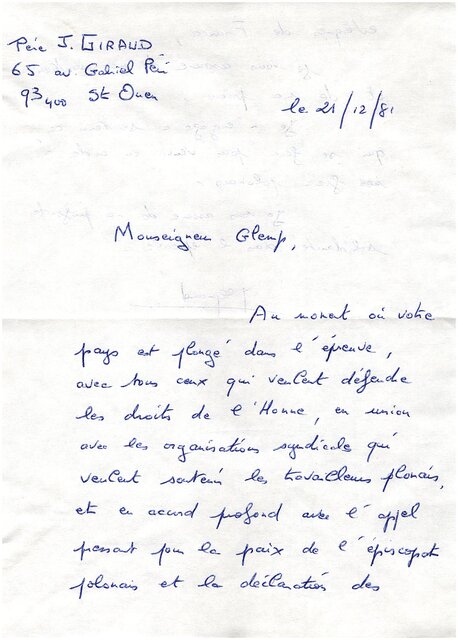 Père J. GIRAUD
65 av. Gabriel Péri
93400 St Ouen
le 21/12/81
Monseigneur Glemp,
Au moment où votre
pays est plongé dans l'épreuve,
avec tous ceux qui veulent défendre
les droits de l'Homme, en union
avec les organisations syndicales qui
veulent soutenir les travailleurs polonais,
et en accord profond avec l'appel
pressant pour la paix de l'épiscopat
polonais et la déclaration des